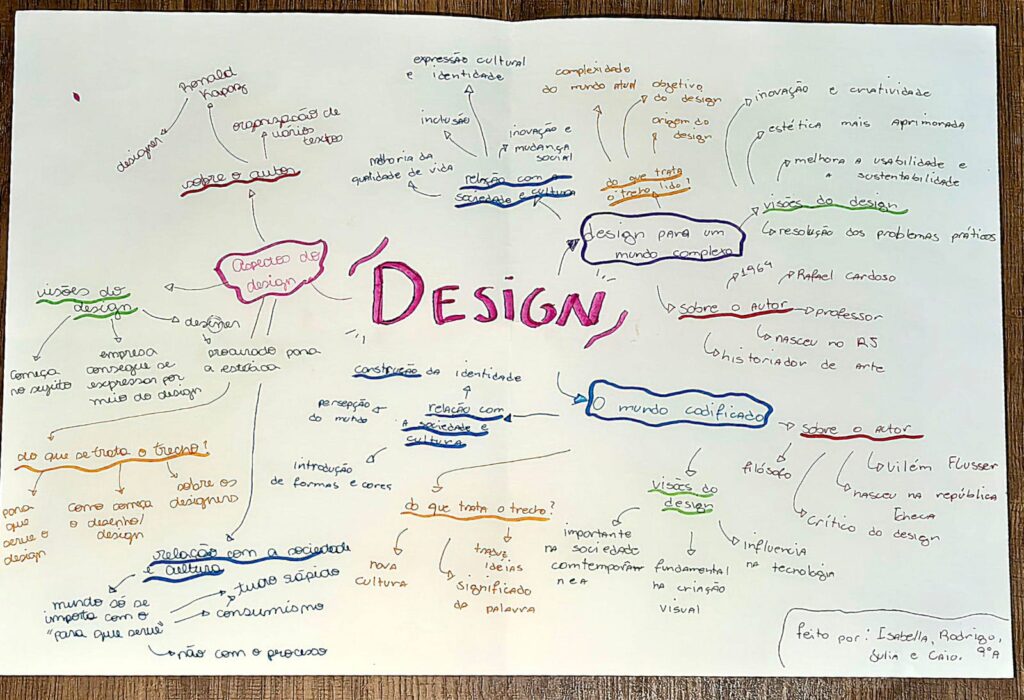 DESIGN
Aspectos do
design
sobre o autor
Ronald
Kapaz
designer
organização de
vários
textos
visões do
design
começa
no sujeito
empresa
consegue se
expressar por
meio do design
procurado para
a estética
do que se trata o trecho?
para
que
serve o
design
como começa
o desenho/
design
sobre os
designers
relação com a sociedade
e cultura
mundo só se
importa com o
"para que serve"
tudo rápido
consumismo
não com o processo
design para um
mundo complexo
relação com a
sociedade e cultura
melhoria da
qualidade de vida
inclusão
expressão cultural
e identidade
inovação e
mudança
social
do que trata
o trecho lido?
complexidade
do mundo atual
objetivo
do design
origem do
design
visões do design
inovação e criatividade
estética mais aprimorada
melhora a usabilidade e
a sustentabilidade
resolução dos problemas práticos
sobre o autor
1964
Rafael Cardoso
professor
nasceu no RJ
historiador de arte
O mundo codificado
relação com
a sociedade e
cultura
construção da identidade
persepção
do mundo
introdução
de formas e cores
do que trata o trecho?
nova
cultura
significado
da palavra
traduz
ideias
visões do
design
importante
na sociedade
comtemporan
nea
fundamental
na criação
visual
influencia
na tecnologia
sobre o autor
filósofo
Crítico do design
nasceu na república
tcheca
Vilém Flusser
feito por: Isabella, Rodrigo,
Julia e Caio. 9°A